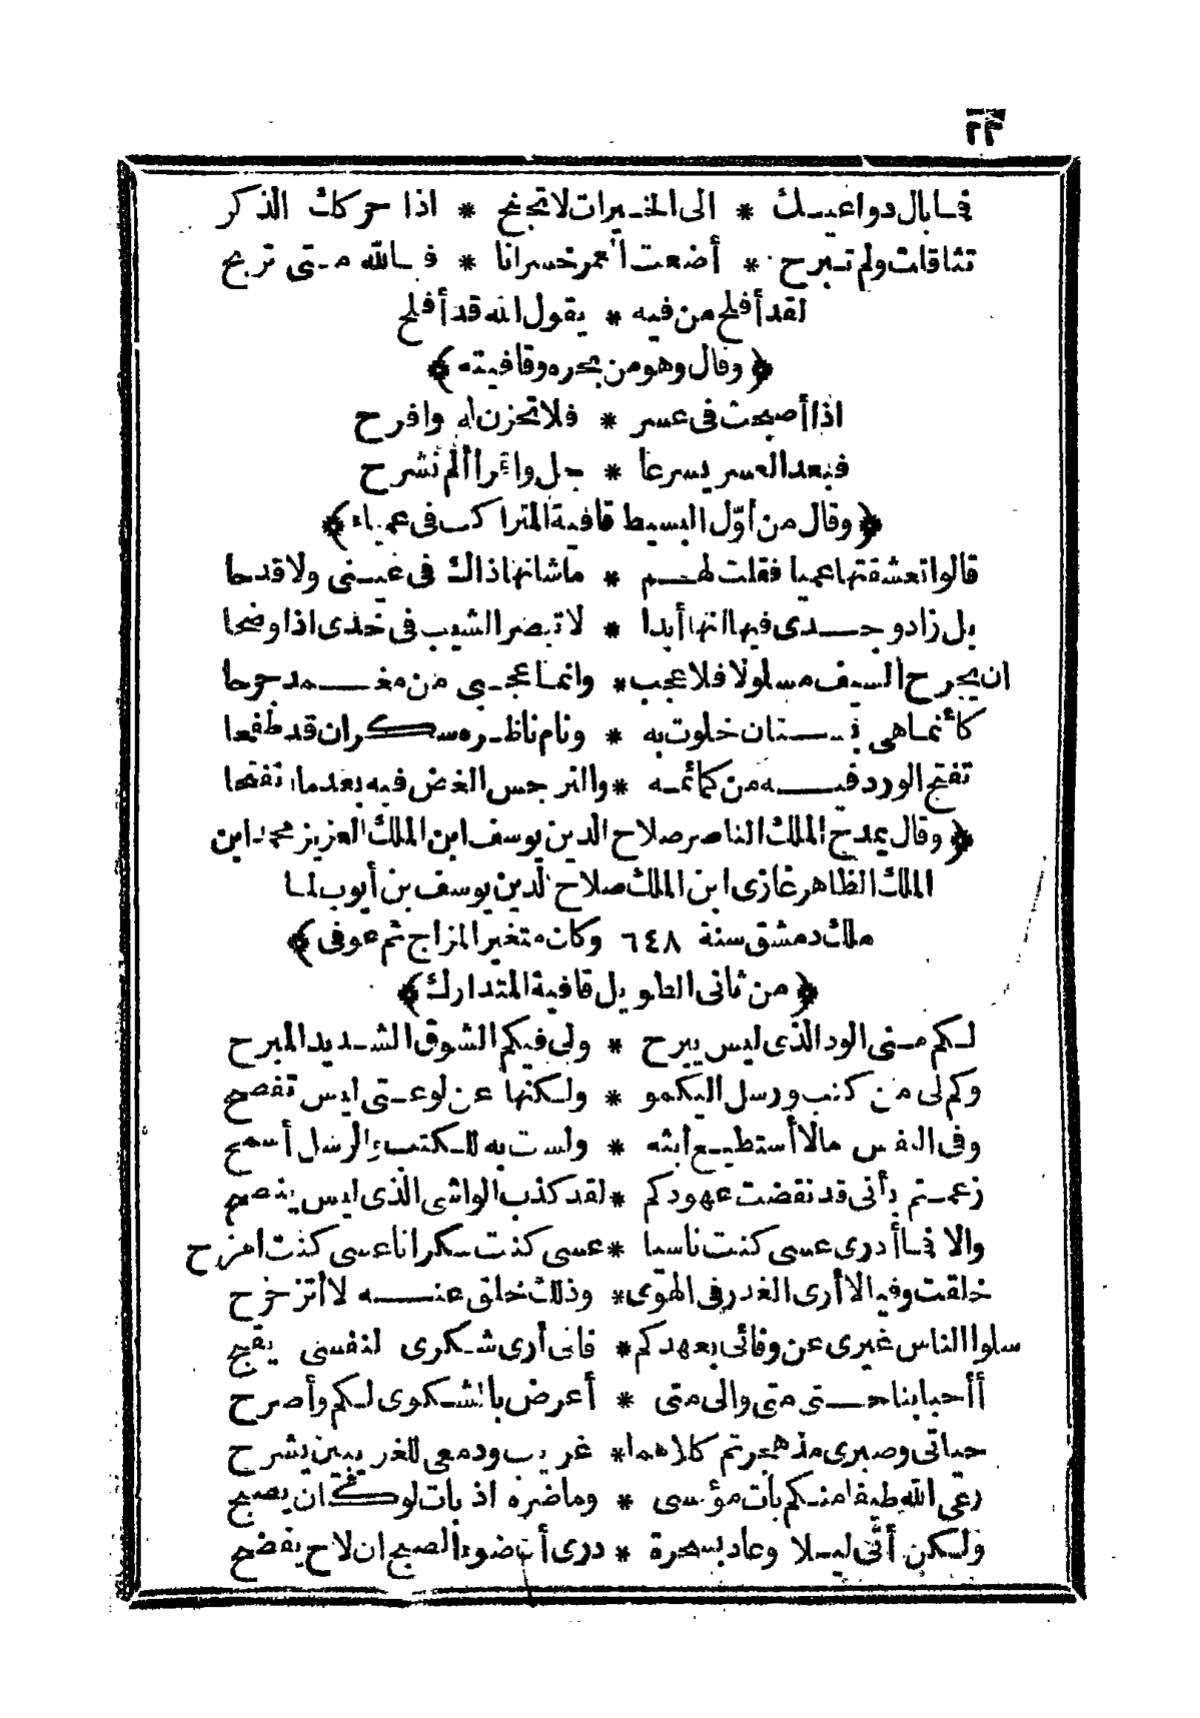 ٤٣
فما بال دواعيك * الى الخيرات لا تجنح * اذا حركك الذكر
تثاقلت ولم تبرح * أضعت العمر خسرانا * فبالله متى تربح
لقد أفلح من فيه * يقول الله قد أفلح
﴿ وقال وهو من بحره وقافيته ﴾
اذا أصبحت فى عسر * فلا تحزن له وافرح
فبعد العسر يسر عا * جل واقرأ ألم نشرح
﴿ وقال من أوّل البسيط قافية المتراكب فى عمياء ﴾
قالوا تعشقتها عميا فقلت لهم * ما شانها ذاك فى عينى ولا قدحا
بل زاد وجدى فيها انها أبدا * لا تبصر الشيب فى خدى اذا وضحا
ان يجرح السيف مسلولا فلا عجب * وانما عجبى من مغمد جرحا
كأنما هى بستان خلوت به * ونام ناظره سكران قد طفحا
تفتح الورد فيه من كمائمه * والنرجس الغض فيه بعد ما انفتحا
﴿ وقال يمدح الملك الناصر صلاح الدين يوسف ابن الملك العزيز محمد ابن
الملك الظاهر غازى ابن الملك صلاح الدين يوسف بن أيوب لما
ملك دمشق سنة ٦٤٨ وكان متغير المزاج ثم عوفى ﴾
﴿ من ثانى الطويل قافية المتدارك ﴾
لكم منى الود الذى ليس يبرح * ولى فيكم الشوق الشديد المبرح
وكم لى من كتب ورسل اليكمو * ولكنها عن لوعتى ليس تفصح
وفى النفس مالا أستطيع أبثه * ولست به للكتب والرسل أسمح
زعمتم بأنى قد نقضت عهودكم * لقد كذب الواشى الذى ليس ينصح
والا فما أدرى عسى كنت ناسيا * عسى كنت سكرانا عسى كنت امزح
خلقت وفيا لا أرى الغدر فى الهوى * وذلك خلق عنه لا أتزحزح
سلوا الناس غيرى عن وفائى بعهدكم * فانى أرى شكرى لنفسى يقبح
أأحبابنا حتى متى والى متى * أعرض بالشكوى لكم وأصرح
حياتى وصبرى مذ هجرتم كلاهما * غريب ودمعى للغريبين يشرح
رعى الله طيفا منكم بات مؤنسى * وما ضره اذ بات لو كان يصبح
ولكن أتى ليلا وعاد بسحرة * درى أن ضوء الصبح ان لاح يفضح